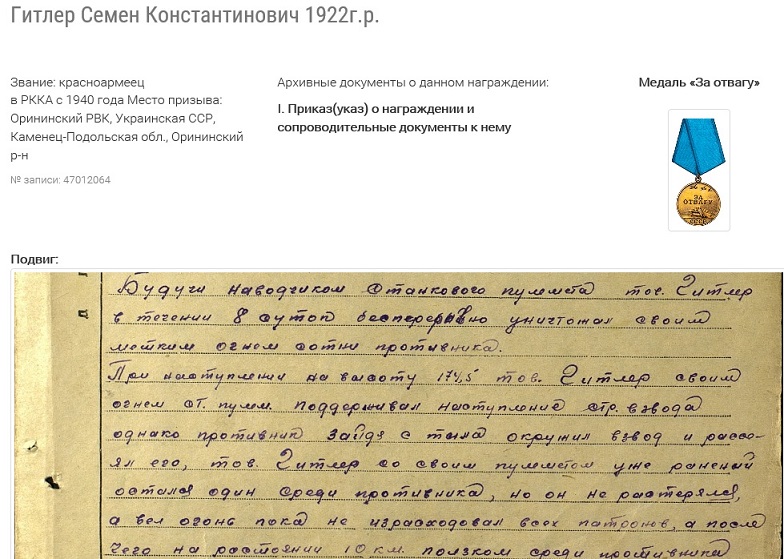 Гитлер Семен Константинович 1922г.р.
Звание: красноармеец
в РККА с 1940 года Место призыва:
Орининский РВК, Украинская ССР,
Каменец-Подольская обл., Орининский
р-н
№ записи: 47012064
Архивные документы о данном награждении:
I. Приказ(указ) о награждении и
сопроводительные документы к нему
Медаль «За отвагу»
ЗА
ОТВАГУ
СССР
Подвиг:
Будучи наводчиком станкового пулемета тов. Гитлер
в течении 8 суток бесперерывно уничтожал своим
метким огнем сотни противника.
При наступлении на высоту 174,5 тов. Гитлер своим
огнем ст. пулем. поддерживал наступление стр. взвода
однако противник зайдя с тыла окружил взвод и рассе-
ял его, тов. Гитлер со своим пулеметом уже раненый
остался один среди противника, но он не растерялся,
а вел огонь пока не израсходовал всех патронов, а после
чего на расстоянии 10 км. ползком среди противника